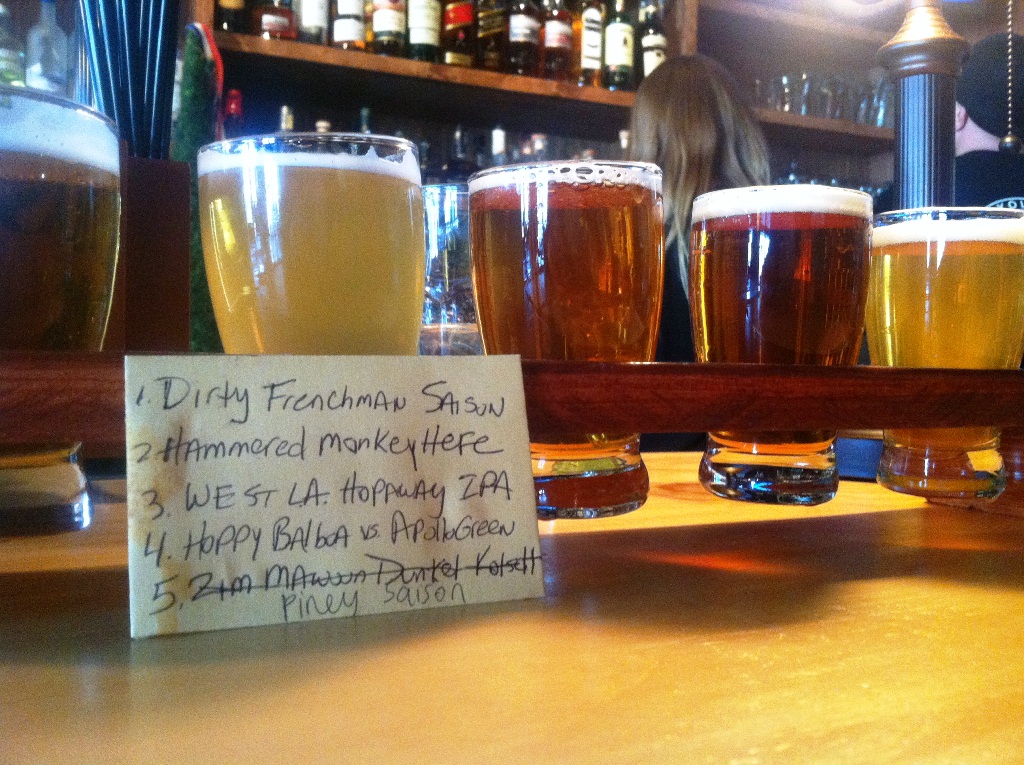 1. Dirty Frenchman Saison
2. Hammered Monkey Hefe
3. WEST L.A. HOPPAWAY IPA
4. HOPPY BAlboA vs. Apollo Green
5. Zim MAwuun Dunkel Kolsch
Piney Saison